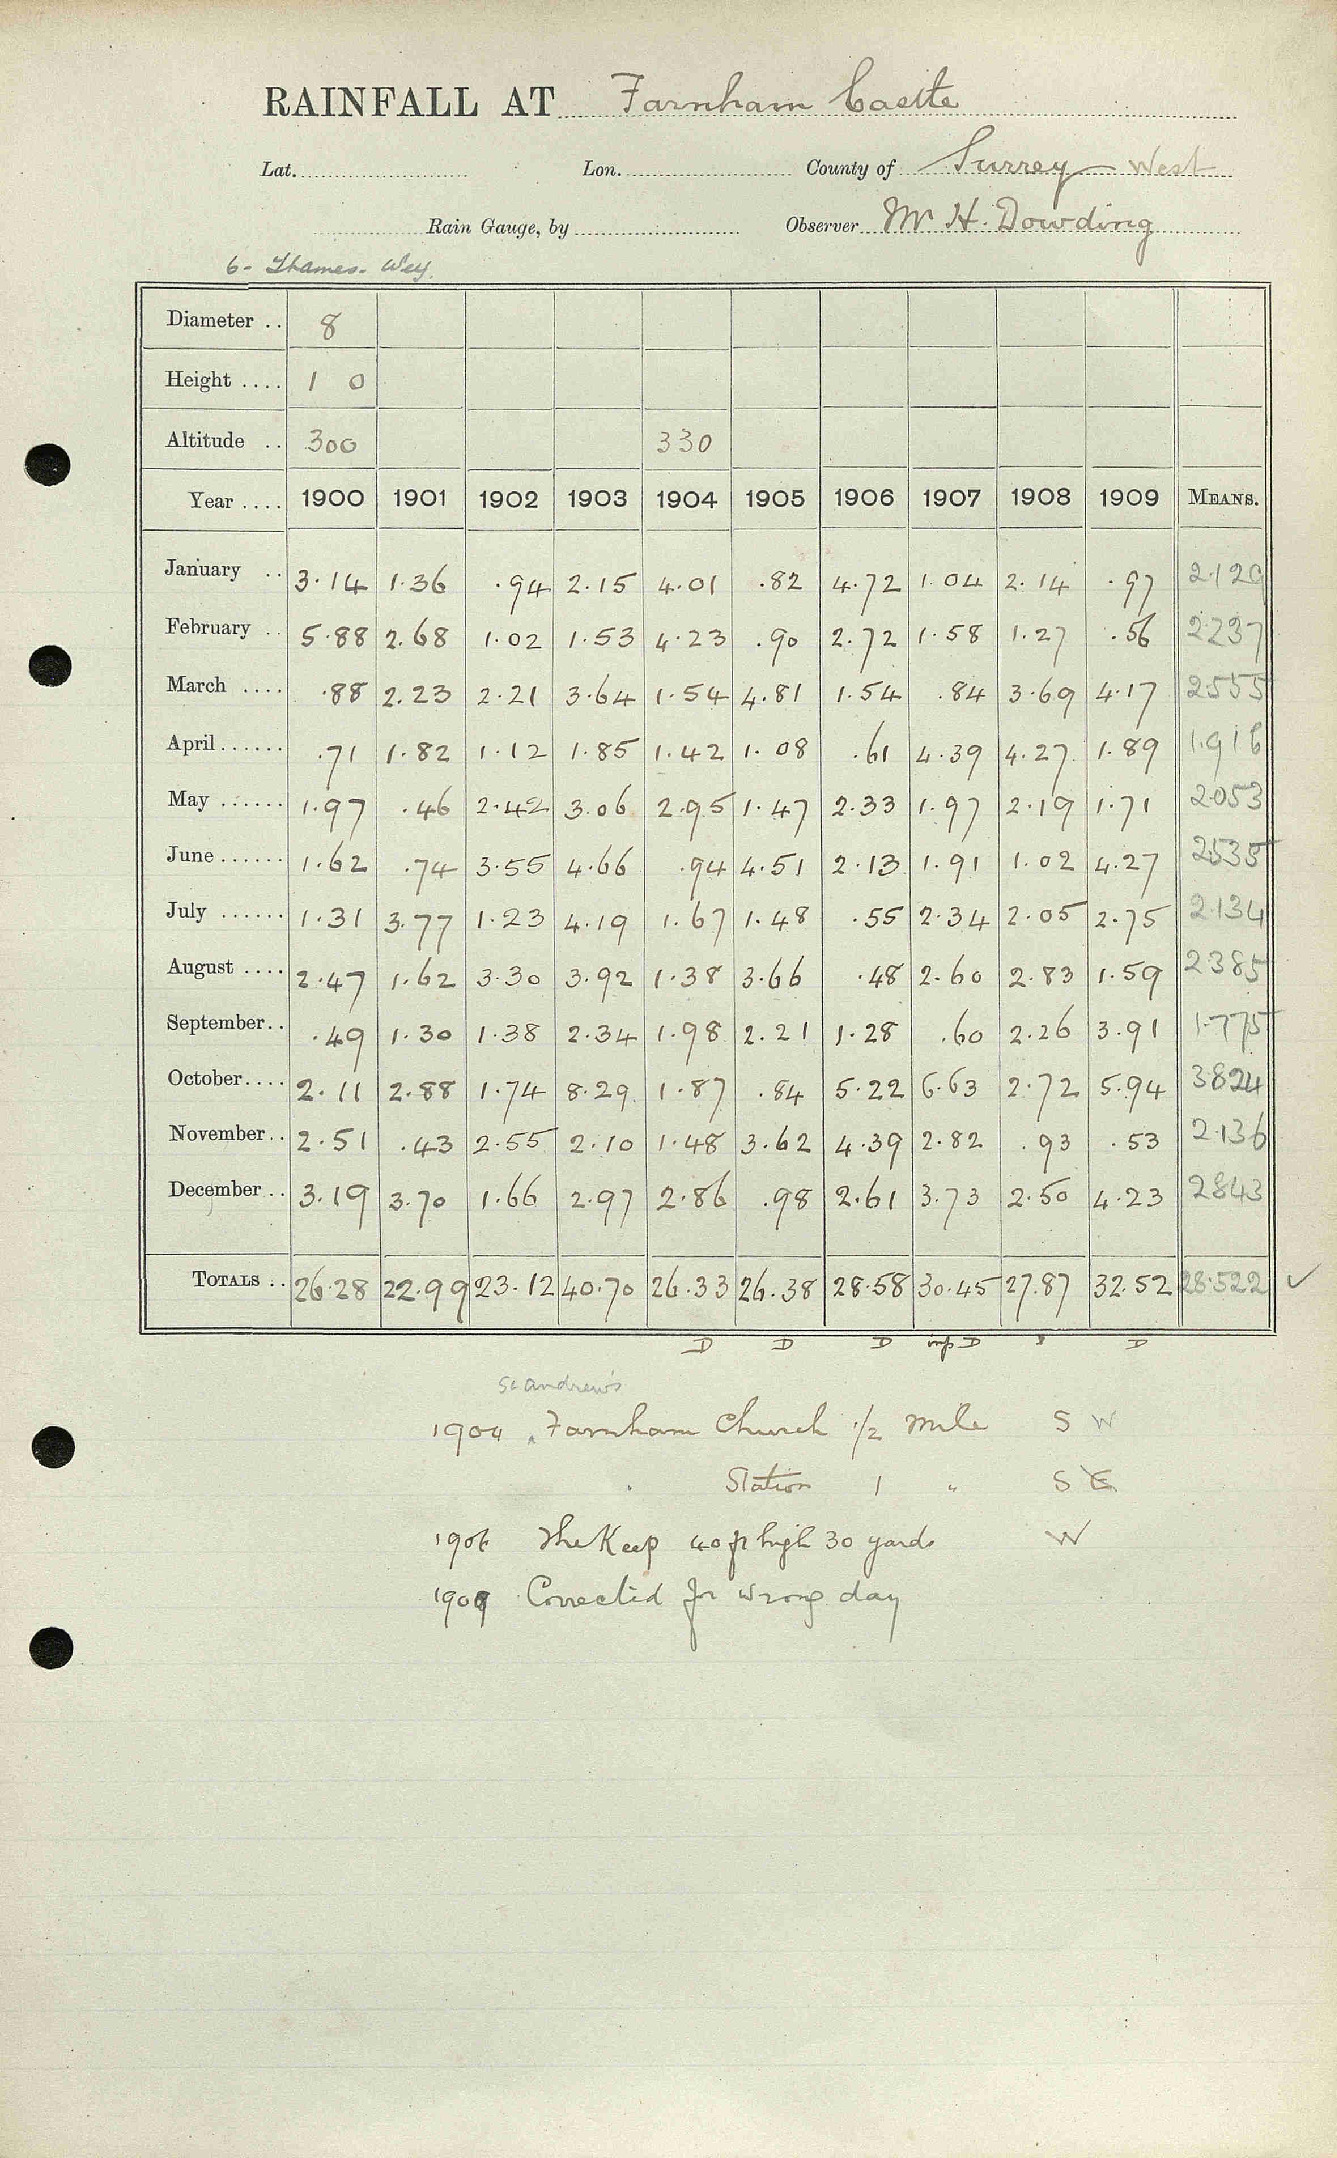 RAINFALL AT Farnham Castle
Lat. Lon. County of Surrey West
Rain Gauge, by Observer Mr H. Dowding
6 - Thames - Wey
Diameter .. 8
Height .... 1 0
Altitude .. 300 330
Year .... 1900 1901 1902 1903 1904 1905 1906 1907 1908 1909 MEANS.
January .. 3.14 1.36 .94 2.15 4.01 .82 4.72 1.04 2.14 .97 2.129
February .. 5.88 2.68 1.02 1.53 4.23 .90 2.72 1.58 1.27 .56 2.237
March .... .88 2.23 2.21 3.64 1.54 4.81 1.54 .84 3.69 4.17 2.555
April ...... .71 1.82 1.12 1.85 1.42 1.08 .61 4.39 4.27 1.89 1.916
May ...... 1.97 .46 2.42 3.06 2.95 1.47 2.33 1.97 2.19 1.71 2.053
June ...... 1.62 .74 3.55 4.66 .94 4.51 2.13 1.91 1.02 4.27 2535
July ...... 1.31 3.77 1.23 4.19 1.67 1.48 .55 2.34 2.05 2.75 2.134
August .... 2.47 1.62 3.30 3.92 1.38 3.66 .48 2.60 2.83 1.59 2385
September .. .49 1.30 1.38 2.34 1.98 2.21 1.28 .60 2.26 3.91 1.775
October .... 2.11 2.88 1.74 8.29 1.87 .84 5.22 6.63 2.72 5.94 3.824
November .. 2.51 .43 2.55 2.10 1.48 3.62 4.39 2.82 .93 .53 2.136
December .. 3.19 3.70 1.66 2.97 2.86 .98 2.61 3.73 2.50 4.23 2843
TOTALS .. 26.28 22.99 23.12 40.70 26.33 26.38 28.58 30.45 27.87 32.52 28.522 ✓
D D D imp D D
St Andrew's
1904 Farnham Church 1/2 mile S W
Station 1 " S E
1906 The Keep 40 ft high 30 yards W
1909 Corrected for wrong day